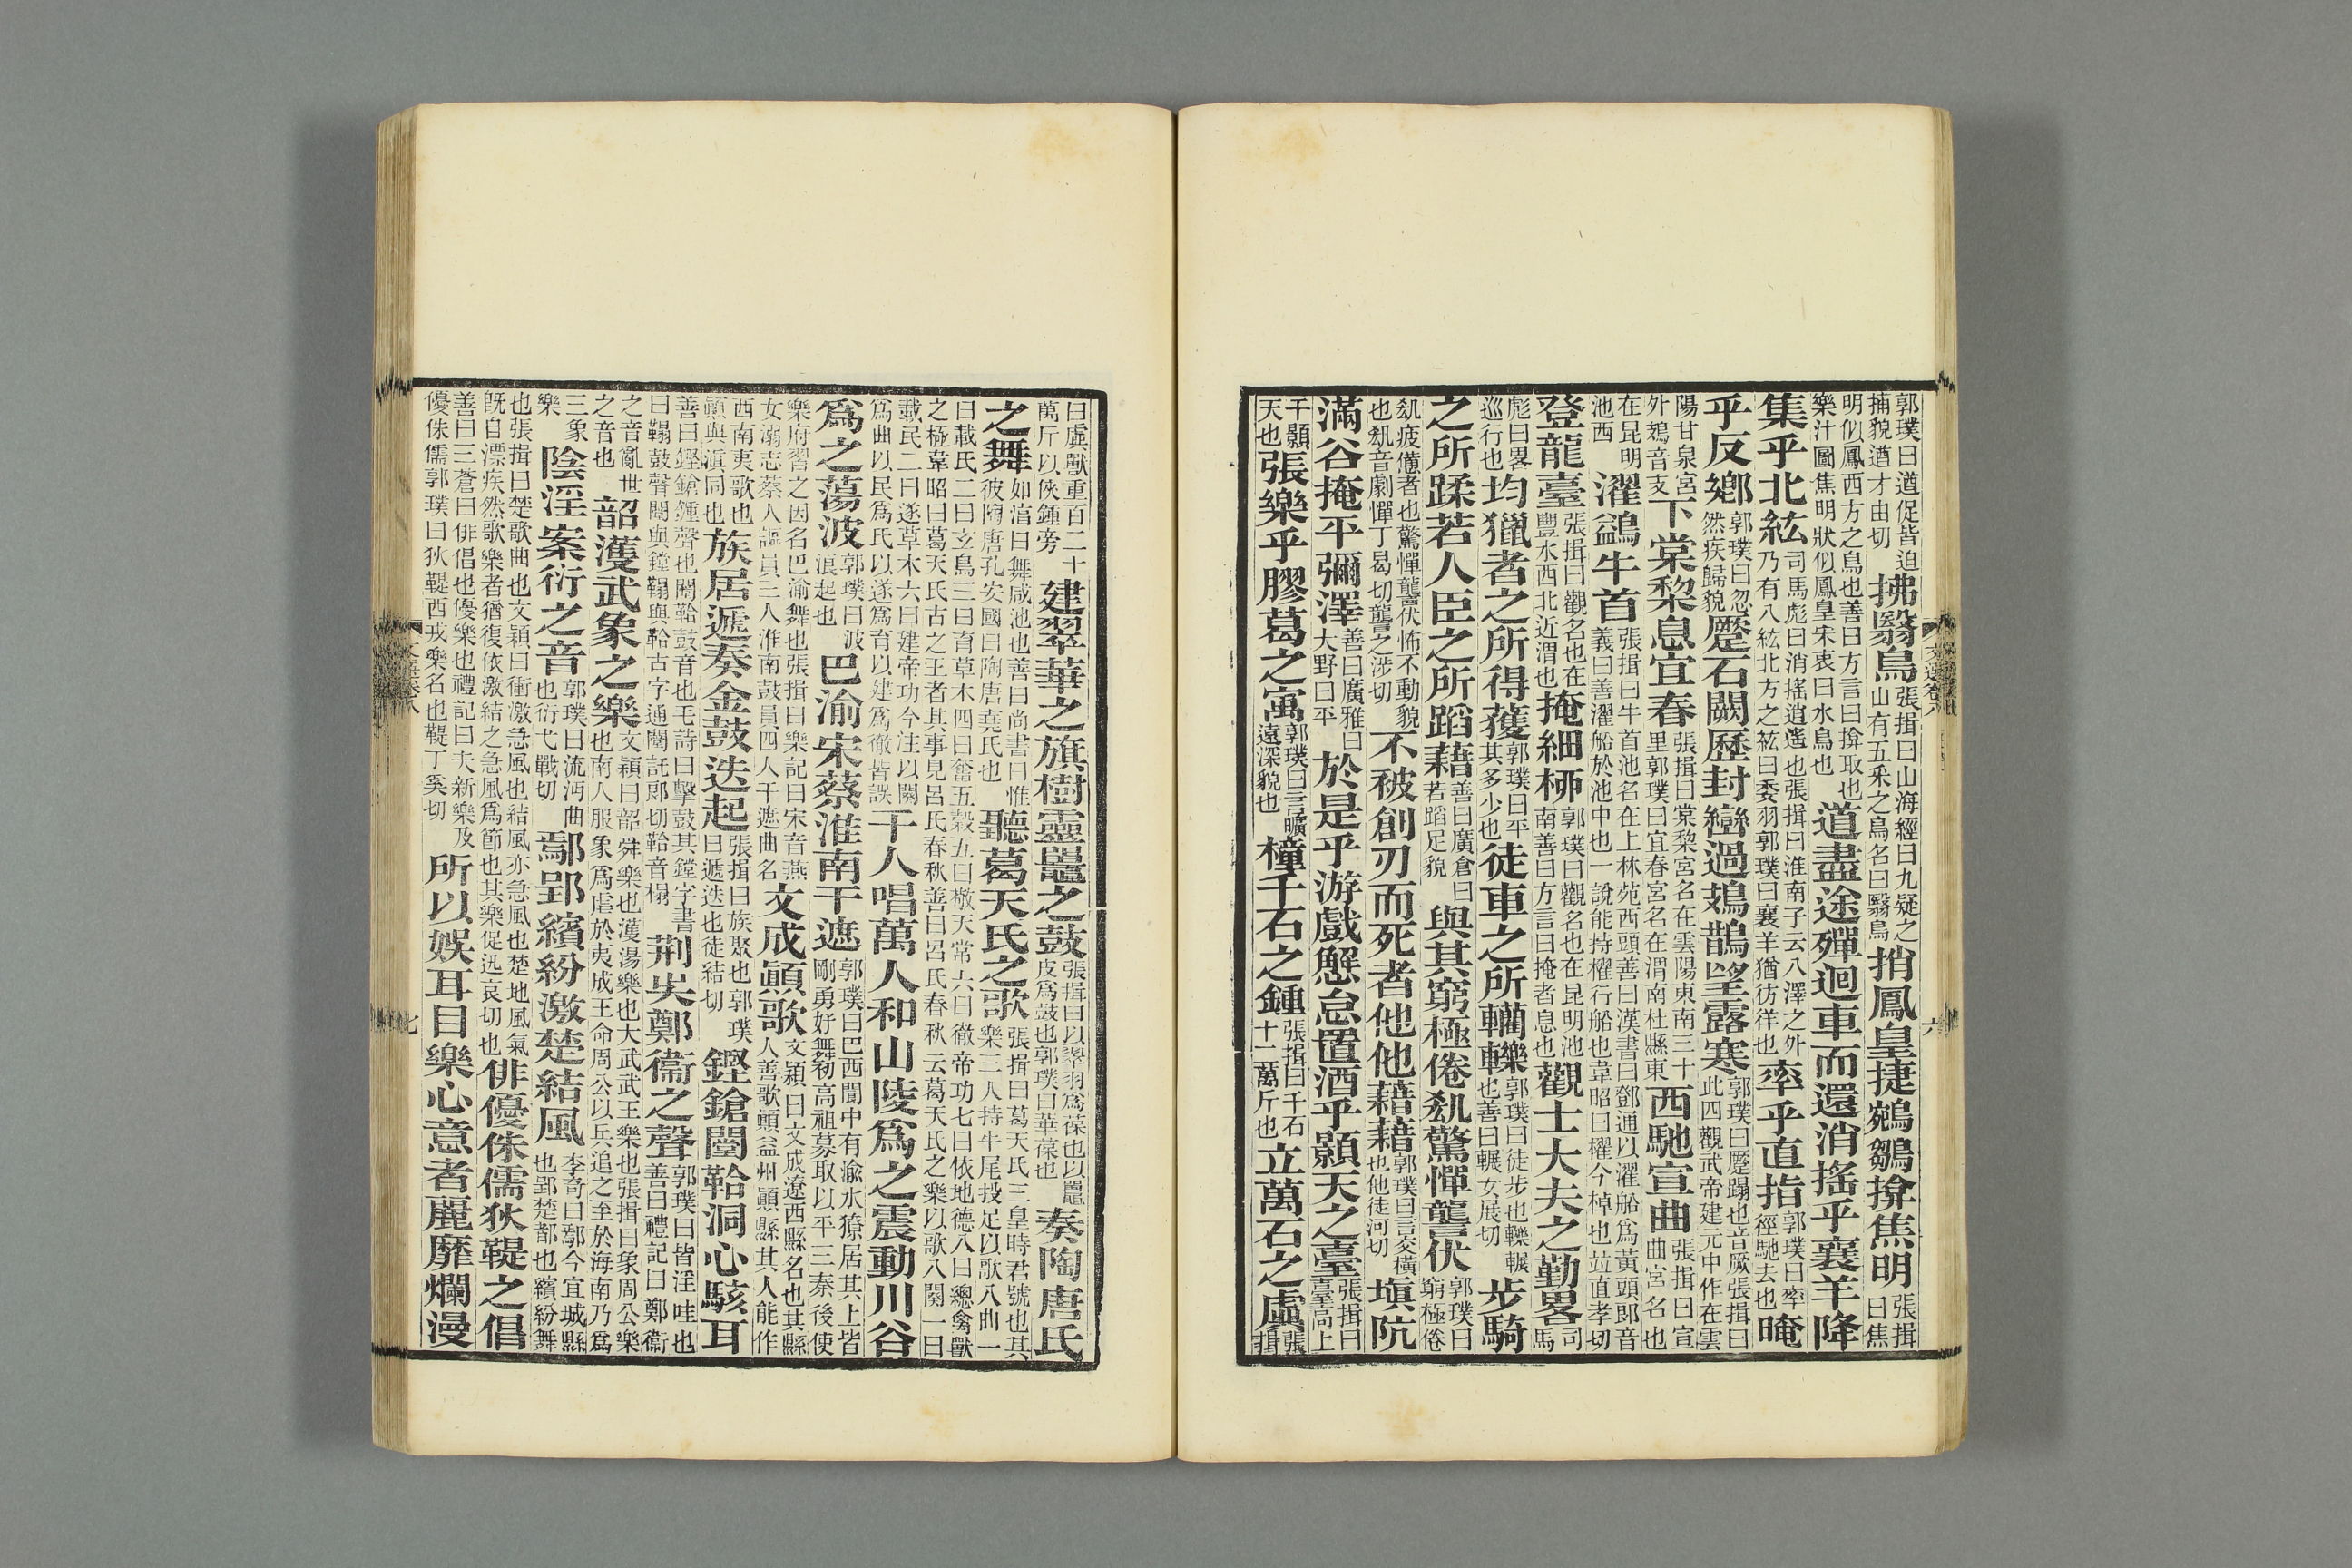 郭璞曰遒促皆迫捕貌遒才由切拂翳鳥張揖曰山海經曰九疑之山有五采之鳥名曰翳鳥捎鳳皇捷鵷鶵揜焦明張揖曰焦
明似鳳西方之鳥也善曰方言曰揜取也樂汁圖焦明狀似鳳皇宋衷曰水鳥也道盡途殫迴車而還消搖乎襄羊降
集乎北紘司馬彪曰消搖逍遙也張揖曰淮南子云八澤之外乃有八紘北方之紘曰委羽郭璞曰襄羊猶彷徉也率乎直指郭璞曰率徑馳去也晻
乎反鄉郭璞曰忽然疾歸貌蹷石闕歷封巒過鳷鵲望露寒郭璞曰蹷蹋也音厥張揖曰此四觀武帝建元中作在雲
陽甘泉宮外鳷音支下棠棃息宜春張揖曰棠棃宮名在雲陽東南三十里郭璞曰宜春宮名在渭南杜縣東西馳宣曲張揖曰宣曲宮名也
在昆明池西濯鷁牛首張揖曰牛首池名在上林苑西頭善曰漢書曰鄧通以濯船爲黃頭郎音義曰善濯船於池中也一說能持櫂行船也韋昭曰櫂今棹也竝直孝切
登龍臺張揖曰觀名也在豐水西北近渭也掩細柳郭璞曰觀名也在昆明池南善曰方言曰掩者息也觀士大夫之勤畧司馬
彪曰畧巡行也均獵者之所得獲郭璞曰平其多少也徒車之所轥轢郭璞曰徒步也轢輾也善曰輾女展切步騎
之所蹂若人臣之所蹈藉善曰廣倉曰若蹈足貌與其窮極倦㔸驚憚讋伏郭璞曰窮極倦
㔸疲憊者也驚憚讋伏怖不動貌也㔸音劇憚丁曷切讋之涉切不被創刃而死者他他藉藉郭璞曰言交橫也他徒河切塡阬
滿谷掩平彌澤善曰廣雅曰大野曰平於是乎游戲懈怠置酒乎顥天之臺張揖曰臺高上
千顥天也張樂乎膠葛之㝢郭璞曰言曠遠深貌也橦千石之鍾張揖曰千石十二萬斤也立萬石之虡張揖
文選卷八
六
曰虡獸重百二十萬斤以俠鍾旁建翠華之旗樹靈鼉之鼓張揖曰以翠羽爲葆也以鼉皮爲鼓也郭璞曰華葆也奏陶唐氏
之舞如淳曰舞咸池也善曰尚書曰惟彼陶唐孔安國曰陶唐堯氏也聽葛天氏之歌張揖曰葛天氏三皇時君號也其樂三人持牛尾投足以歌八曲一
曰載民二曰玄鳥三曰育草木四曰奮五穀五曰敬天常六曰徹帝功七曰依地德八曰總禽獸之極韋昭曰葛天氏古之王者其事見呂氏春秋善曰呂氏春秋云葛天氏之樂以歌八闋一曰
載民二曰遂草木六曰建帝功今注以闋爲曲以民爲氏以遂爲育以建爲徹皆誤千人唱萬人和山陵爲之震動川谷
爲之蕩波郭璞曰波浪起也巴渝宋蔡淮南干遮郭璞曰巴西閬中有渝水獠居其上皆剛勇好舞初高祖募取以平三秦後使
樂府習之因名巴渝舞也張揖曰樂記曰宋音燕女溺志蔡人謳員三人淮南鼓員四人干遮曲名文成顚歌文穎曰文成遼西縣名也其縣人善歌顚益州顚縣其人能作
西南夷歌也顚與滇同也族居遞奏金鼓迭起張揖曰族聚也郭璞曰遞迭也徒結切鏗鎗闛鞈洞心駭耳
善曰鏗鎗鍾聲也闛鞈鼓音也毛詩曰擊鼓其鏜字書曰鞈鼓聲闛與鏜鞈與鞈古字通闛託郎切鞈音榻荆吳鄭衞之聲郭璞曰皆淫哇也善曰禮記曰鄭衞
之音亂世之音也韶濩武象之樂文穎曰韶舜樂也濩湯樂也大武武王樂也張揖曰象周公樂也南人服象爲虐於夷成王命周公以兵追之至於海南乃爲
三象樂陰淫案衍之音郭璞曰流沔曲也衍弋戰切鄢郢繽紛激楚結風李奇曰鄢今宜城縣也郢楚都也繽紛舞
也張揖曰楚歌曲也文穎曰衝激急風也結風亦急風也楚地風氣旣自漂疾然歌樂者猶復依激結之急風爲節也其樂促迅哀切也俳優侏儒狄鞮之倡
善曰三蒼曰俳倡也優樂也禮記曰夫新樂及優侏儒郭璞曰狄鞮西戎樂名也鞮丁奚切所以娛耳目樂心意者麗靡爛漫
七